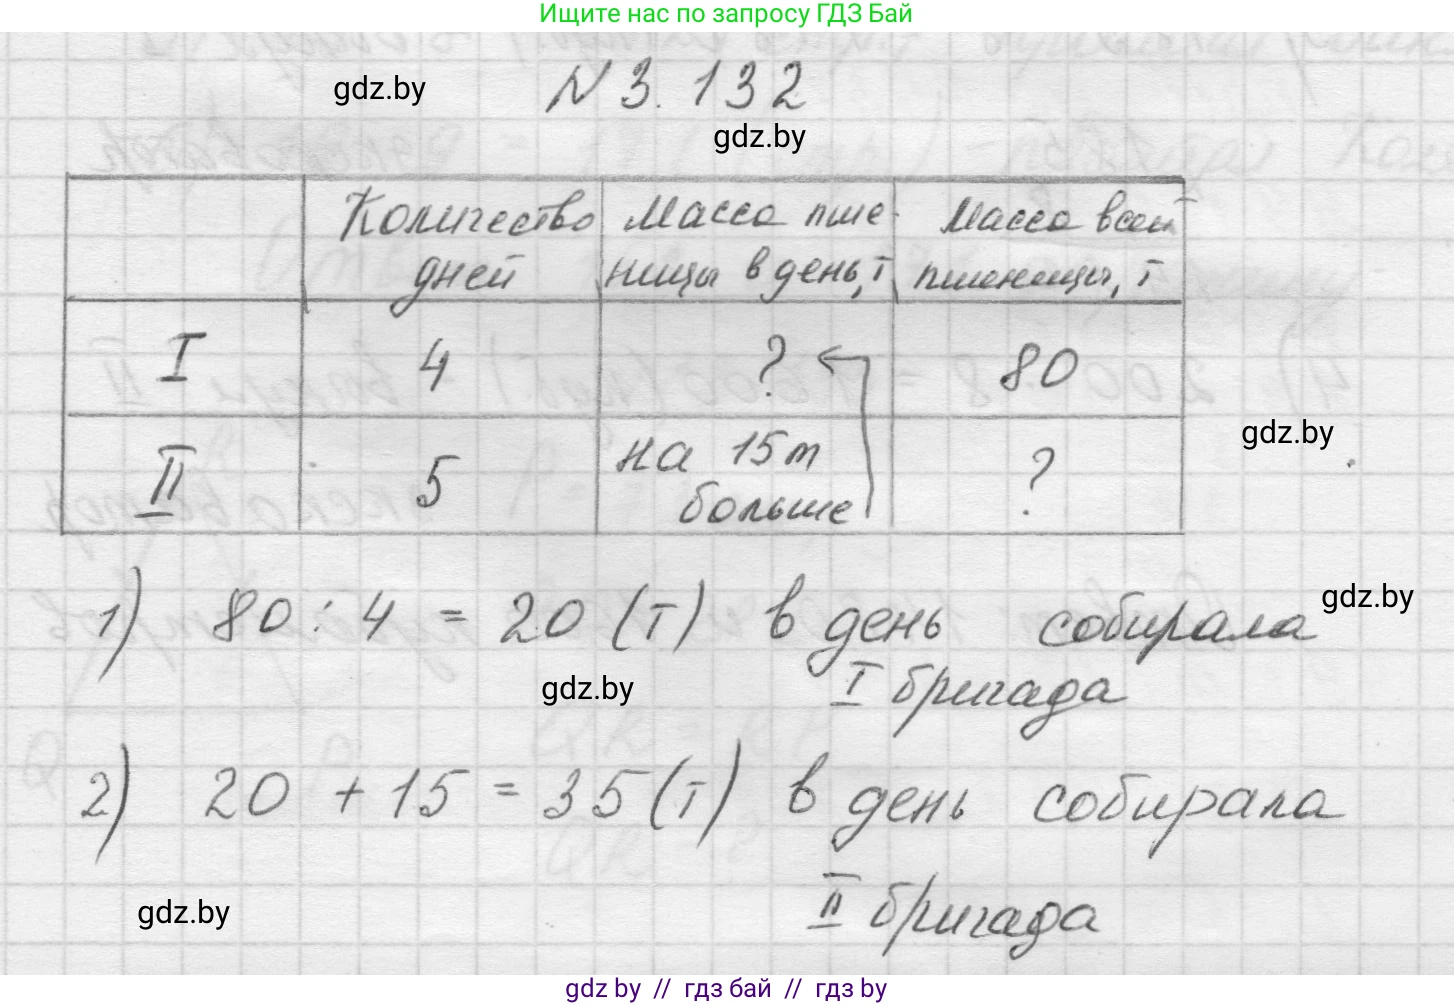 Ищите нас по запросу ГДЗ Бай
gdz.by
N 3. 132
gdz.by
Количество дней
Масса пшеницы в день, т
Масса всей пшеницы, т
I 4 ? 80
gdz.by
II 5 на 15 т больше ?
1) 80 : 4 = 20 (т) в день собирала
gdz.by
I бригада
gdz.by
2) 20 + 15 = 35 (т) в день собирала
II бригада
gdz.by
gdz by // гдз бай // гдз by